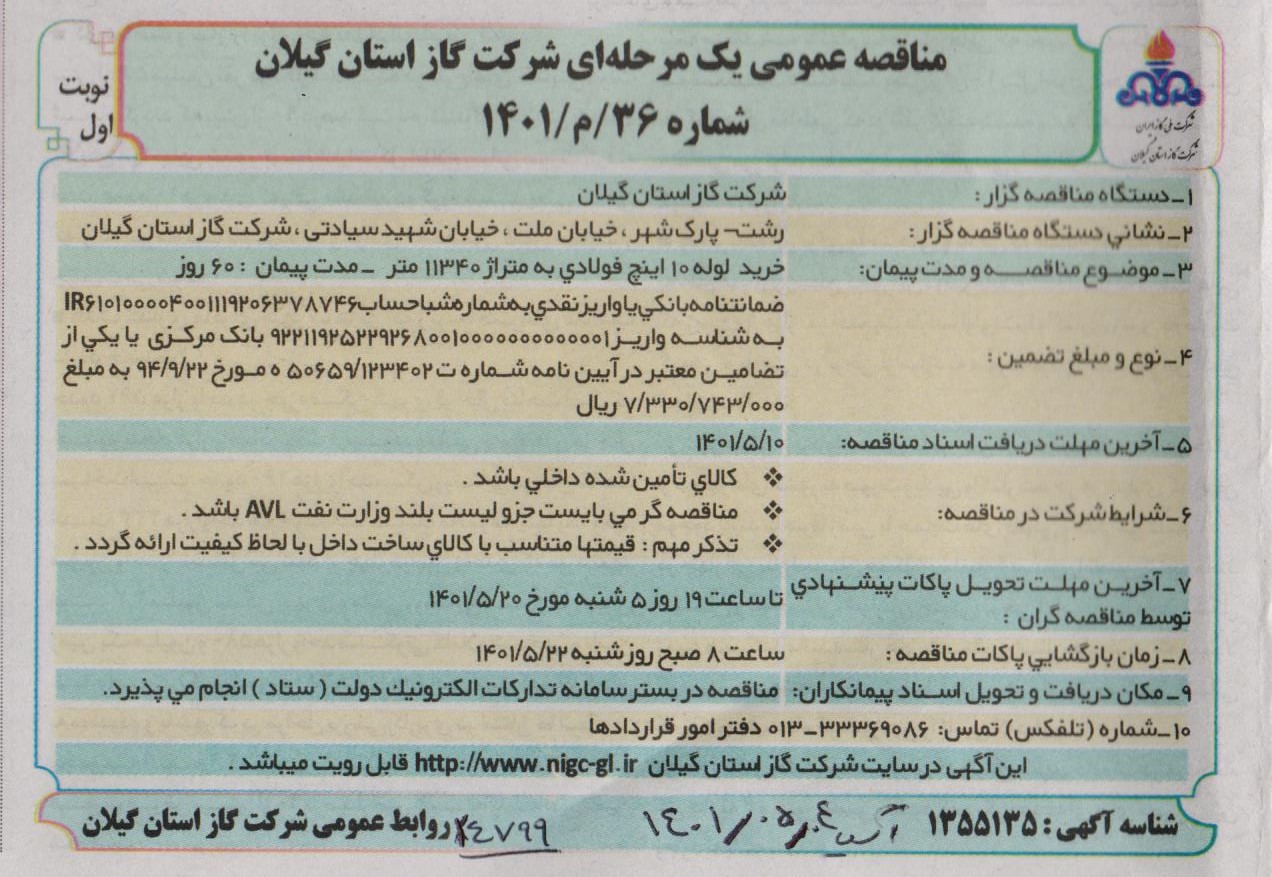 مناقصه عمومی یک مرحله‌ای شرکت گاز استان گیلان
شماره ۳۶/م/۱۴۰۱
نوبت
اول
شرکت ملی گاز ایران
شرکت گاز استان گیلان
۱_دستگاه مناقصه گزار : شرکت گاز استان گیلان
۲_نشاني دستگاه مناقصه گزار : رشت- پارک شهر ، خیابان ملت ، خیابان شهید سیادتی ، شرکت گاز استان گیلان
۳_موضوع مناقصه و مدت پیمان: خرید لوله ۱۰ اینچ فولادي به متراژ ۱۱۳۴۰ متر _مدت پیمان : ۶۰ روز
۴_نوع و مبلغ تضمین : ضمانتنامه بانکي یا واریز نقدي به شماره شبا حساب IR۶۱۰۱۰۰۰۰۴۰۰۱۱۱۹۲۰۶۳۷۸۷۴۶
به شناسه واریز ۹۲۲۱۱۹۲۵۲۲۹۲۶۸۰۰۱۰۰۰۰۰۰۰۰۰۰۰۰۰۱ بانک مرکزی یا یکي از
تضامین معتبر در آیین نامه شماره ت ۵۰۶۵۹/۱۲۳۴۰۲ ه مورخ ۹۴/۹/۲۲ به مبلغ
۷/۳۳۰/۷۴۳/۰۰۰ ریال
۵_آخرین مهلت دریافت اسناد مناقصه: ۱۴۰۱/۵/۱۰
۶_شرایط شرکت در مناقصه: ❖ کالاي تأمین شده داخلي باشد .
❖ مناقصه گر مي بایست جزو لیست بلند وزارت نفت AVL باشد .
❖ تذکر مهم : قیمتها متناسب با کالاي ساخت داخل با لحاظ کیفیت ارائه گردد .
۷_آخرین مهلت تحویل پاکات پیشنهادي
توسط مناقصه گران : تا ساعت ۱۹ روز ۵ شنبه مورخ ۱۴۰۱/۵/۲۰
۸_زمان بازگشایي پاکات مناقصه : ساعت ۸ صبح روز شنبه ۱۴۰۱/۵/۲۲
۹_مکان دریافت و تحویل اسناد پیمانکاران: مناقصه در بستر سامانه تدارکات الکترونیك دولت ( ستاد ) انجام مي پذیرد.
۱۰_شماره (تلفکس) تماس: ۳۳۳۶۹۰۸۶_۰۱۳ دفتر امور قراردادها
این آگهی در سایت شرکت گاز استان گیلان http://www.nigc-gl.ir قابل رویت میباشد .
شناسه آگهی : ۱۳۵۵۱۳۵
۱۴۰۱/۰۵/۰۴
روابط عمومی شرکت گاز استان گیلان